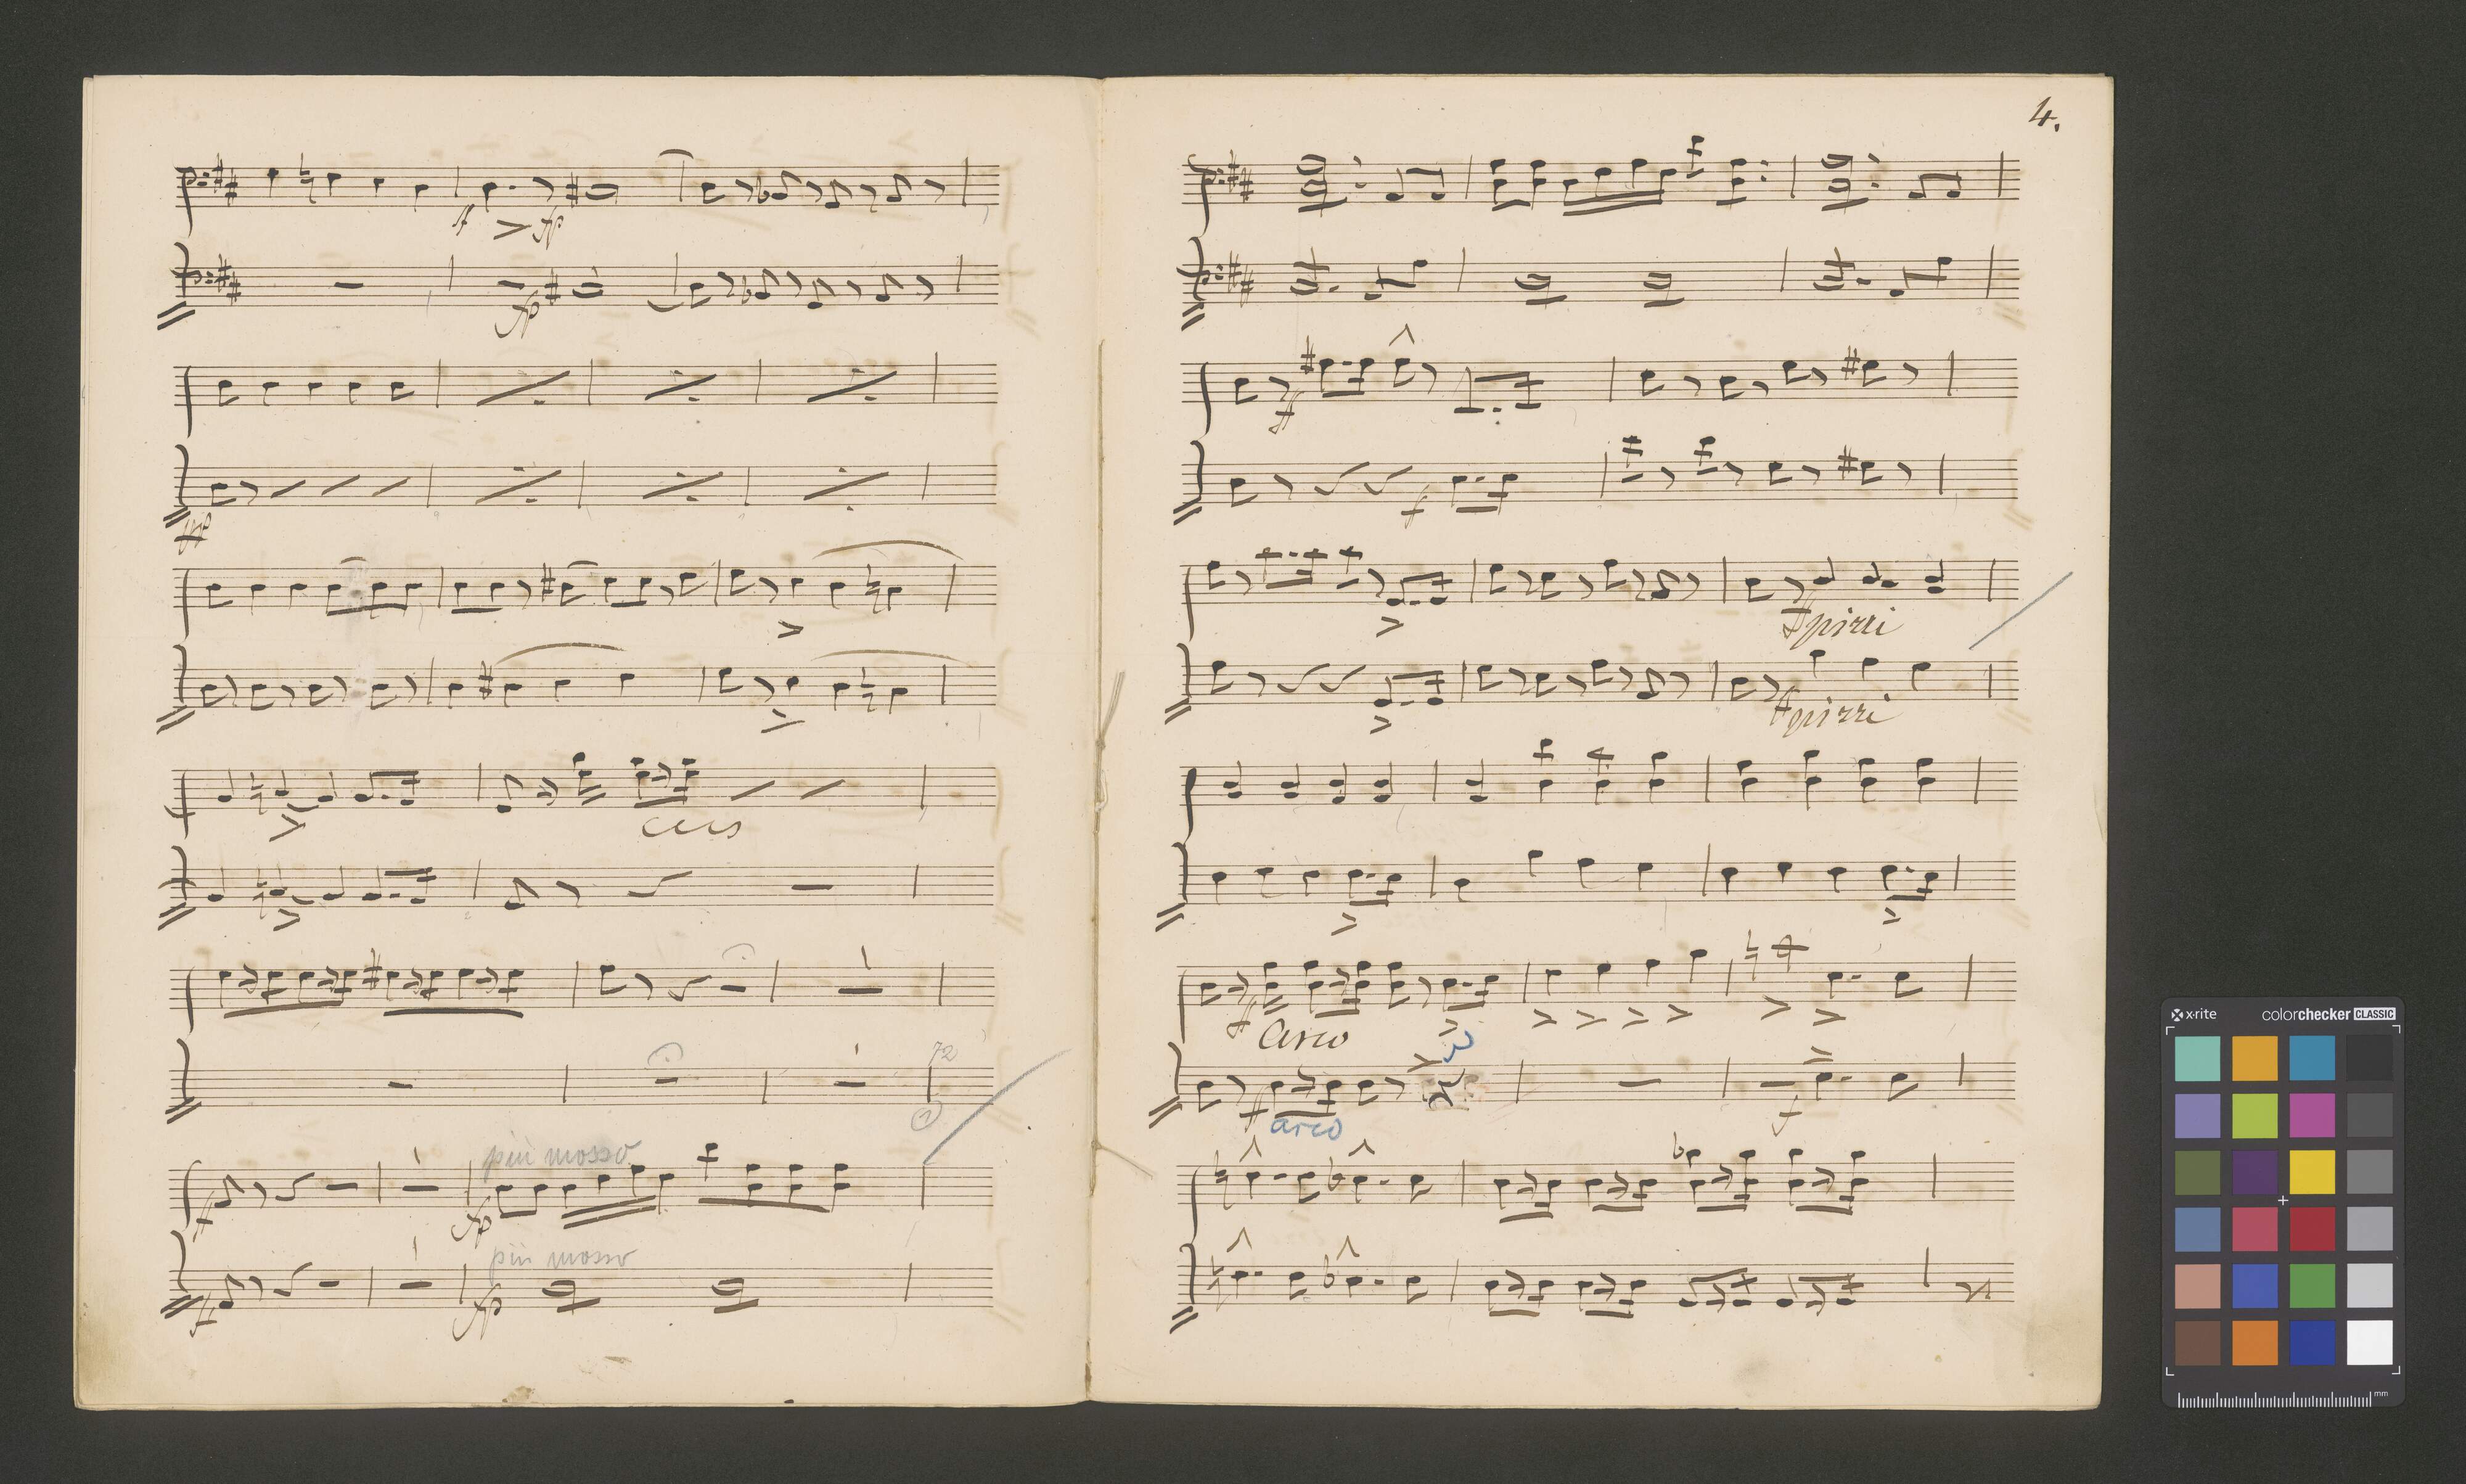 fp
fp
fp
cres
72
più mosso
ff
fp
più mosso
ff
fp
4.
ff
f
ff pizzi
ff pizzi
ff
arco
ff
arco
f
x-rite
colorchecker CLASSIC
mm